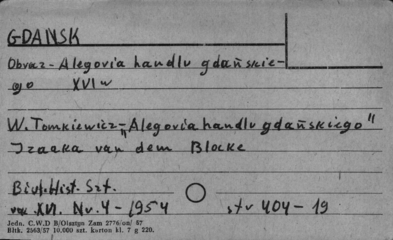 GDAŃSK
Obraz - Alegoria handlu gdańskie-
go XVI w
W. Tomkiewicz - „Alegoria handlu gdańskiego"
Izaaka van dem Blocke
Biul. Hist. Szt.
XVI. Nr. 4 - 1954 str 404 - 19
Jedn. C.W.D B/Olsztyn Zam 2776/on/ 67
Bltk. 2563/57 10.000 szt. karton kl. 7 g 220.